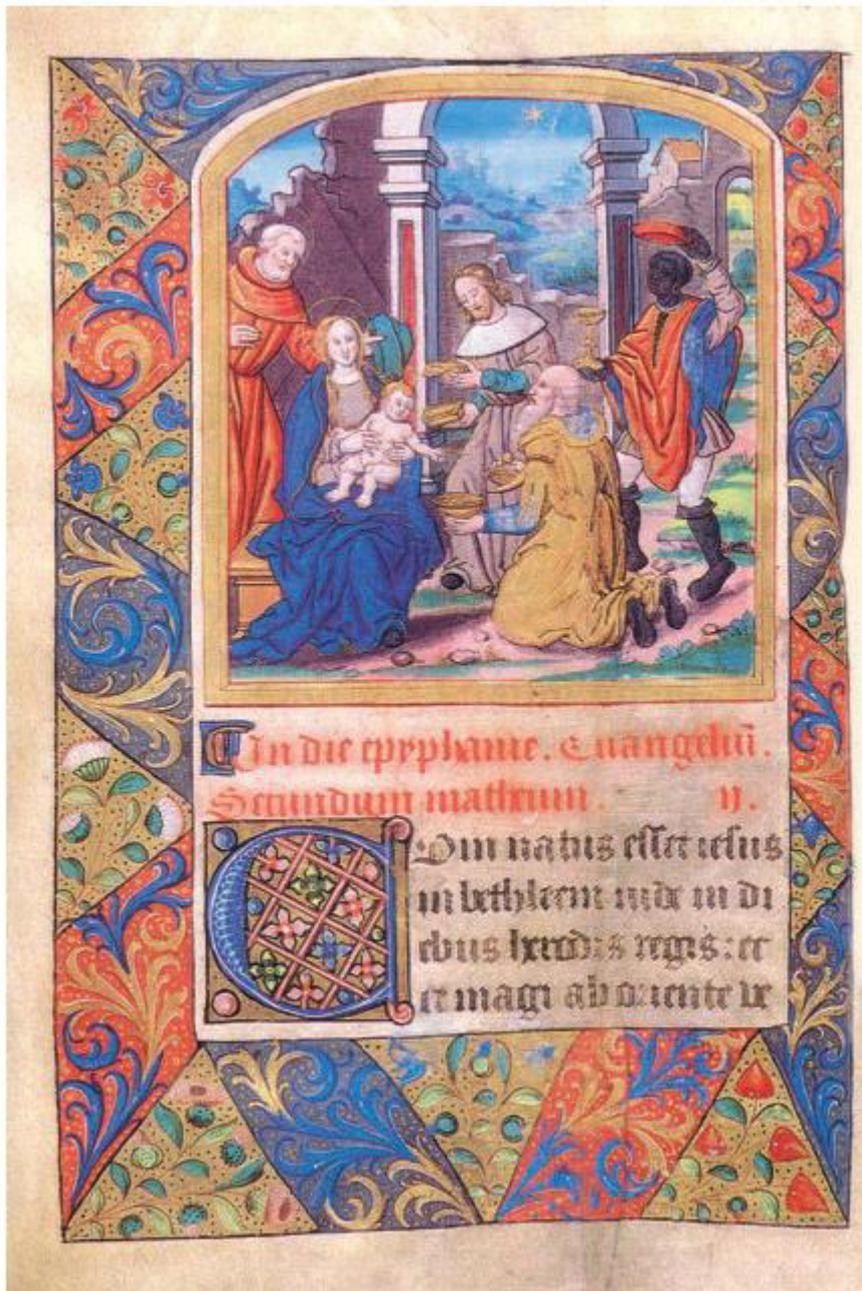 In die epyphanie. Euangeliū.
Secundum matheum. ij.
Cum natus esset iesus
in bethleem iude in di
ebus herodis regis: ec
ce magi ab oriente ve